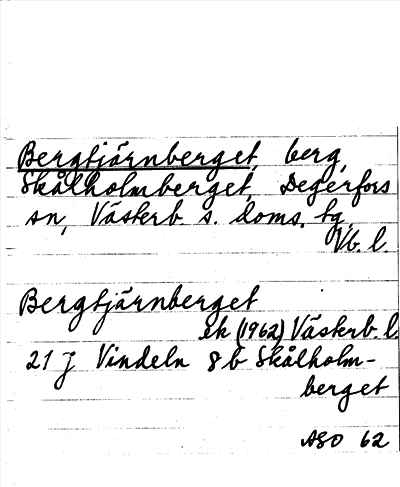 Bergtjärnberget, berg,
Skålholmberget, Degerfors
sn, Västerb. s. doms. tg,
Vb. l.
Bergtjärnberget
ek (1962) Västerb. l.
21 J Vindeln 8 b Skålholm-
berget
ASO 62